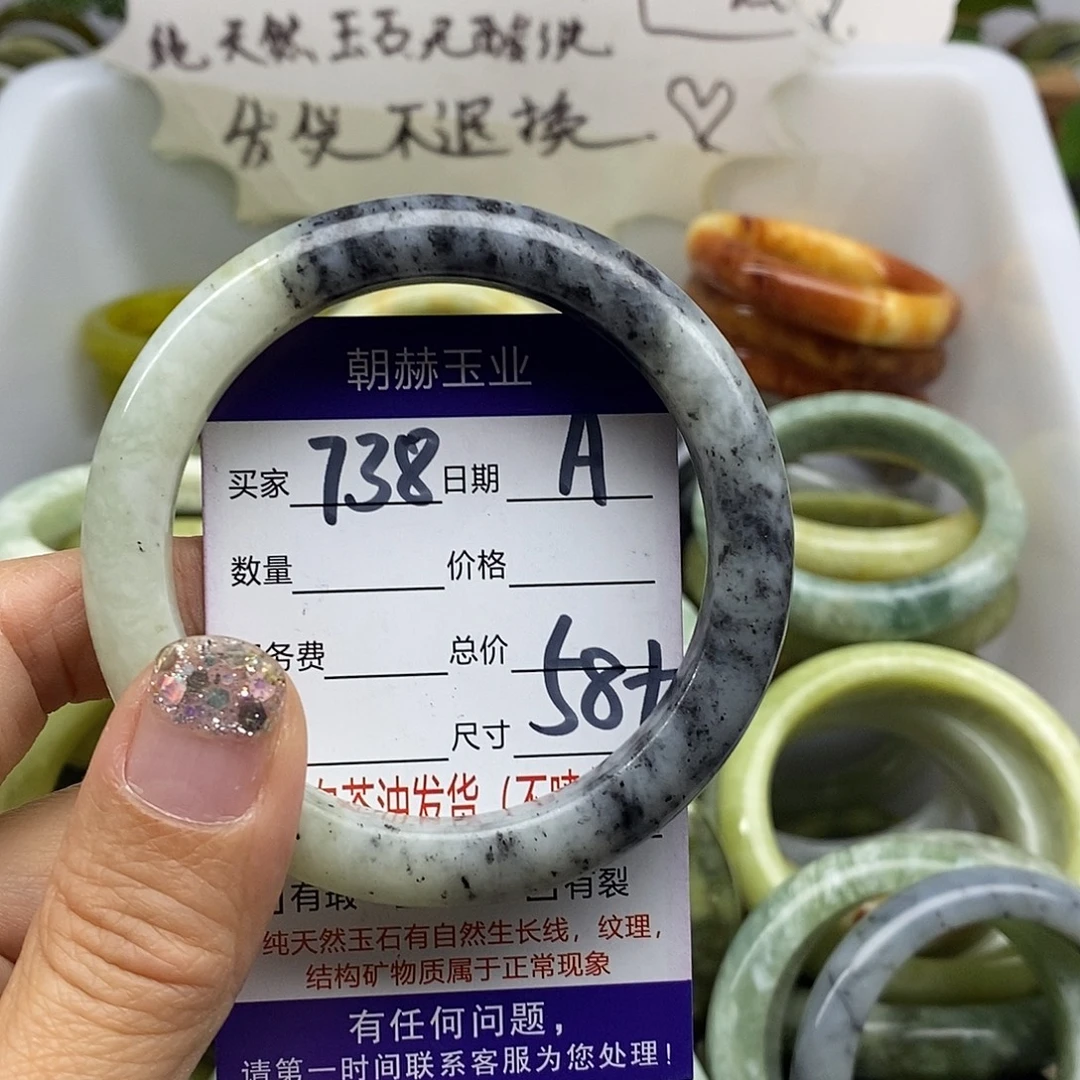 纯天然玉石无酸洗
发货不退换
朝赫玉业
买家 738 日期 A
数量 价格
务费 总价
尺寸 58+
茶油发货（不
有瑕 有裂
纯天然玉石有自然生长线，纹理，
结构矿物质属于正常现象
有任何问题，
请第一时间联系客服为您处理！